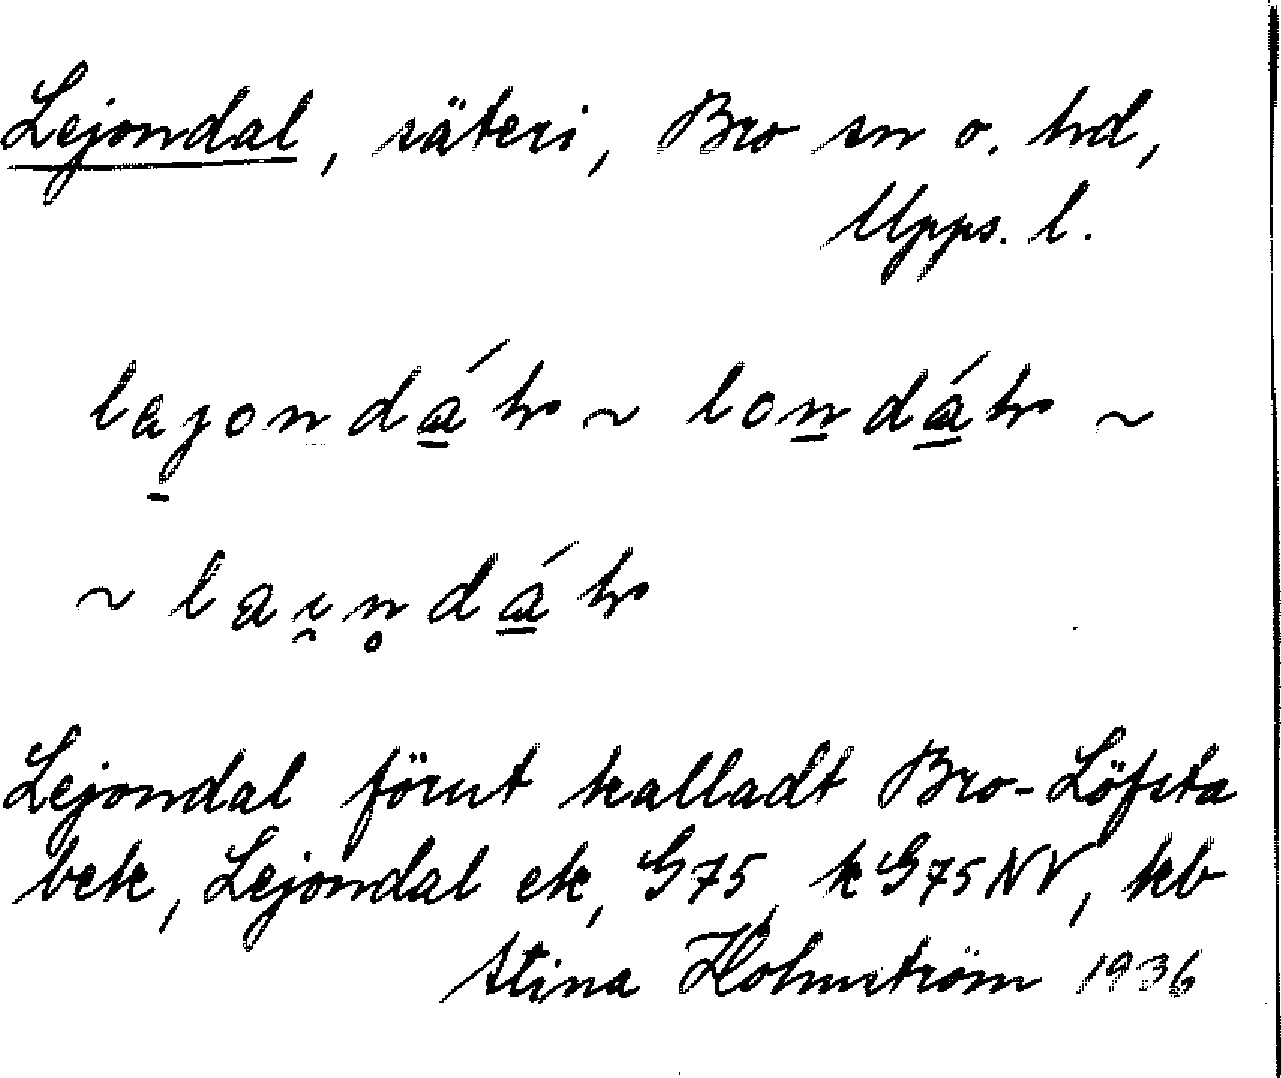 Lejondal, säteri, Bro sn o. hd,
Upps. l.
lajondá̱ls ~ lon̲dá̱ls ~
~ laɪ̯n̥dá̱ls
Lejondal förut kalladt Bro-Löfsta
bek, Lejondal ek, G75, kG75NV, kb
Stina Holmström 1936